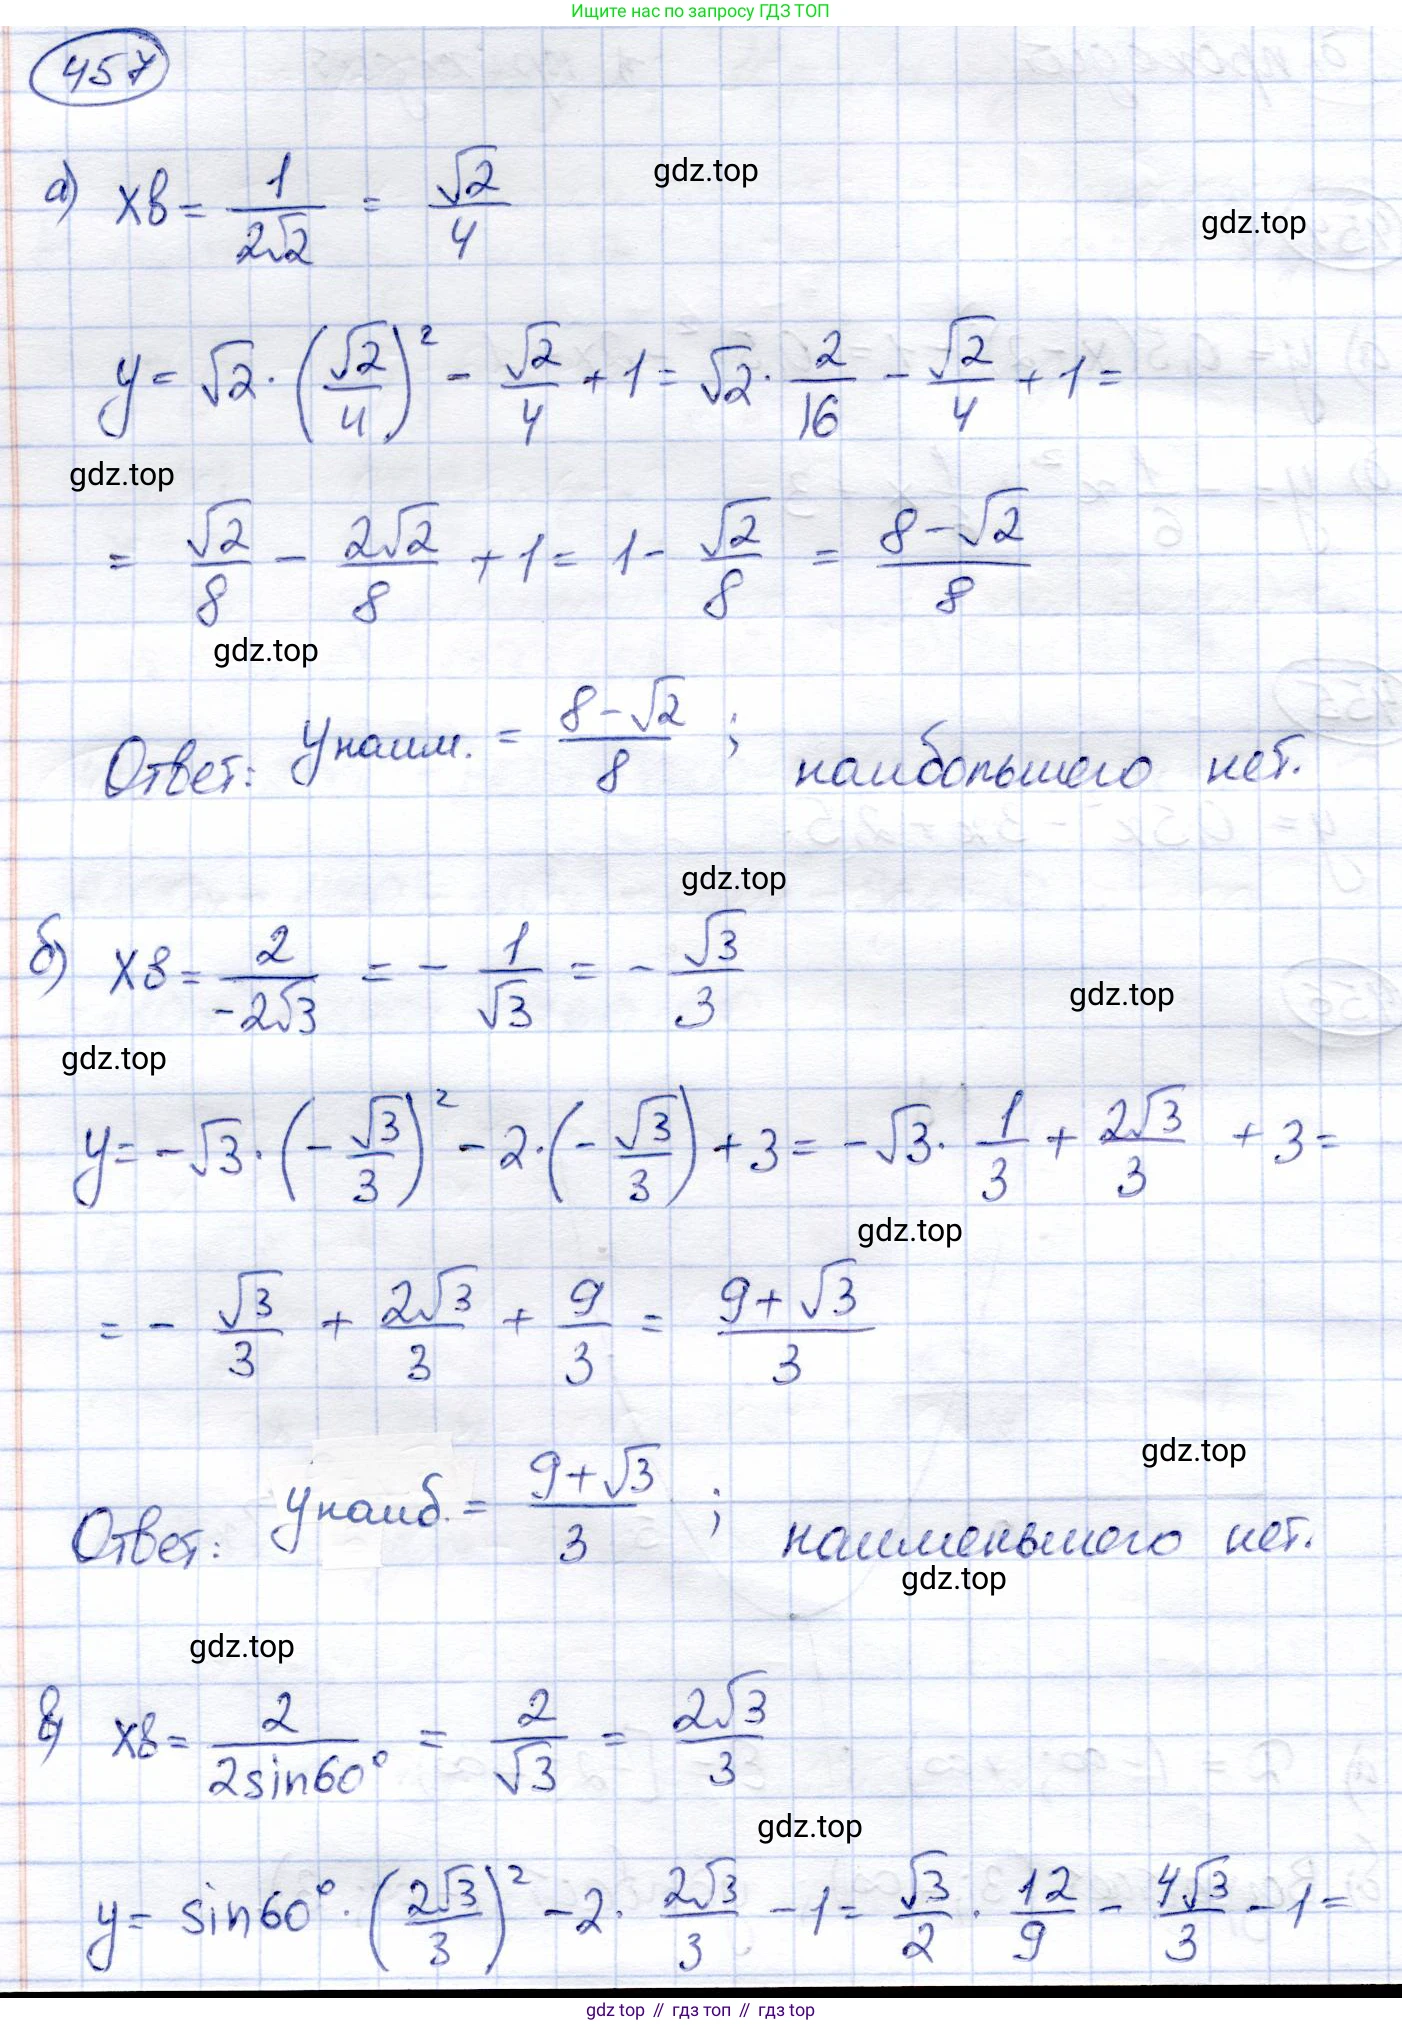 Ищите нас по запросу ГДЗ ТОП
457
а) xв = 1/(2√2) = √2/4
gdz.top
gdz.top
y = √2 · (√2/4)² - √2/4 + 1 = √2 · 2/16 - √2/4 + 1 =
gdz.top
= √2/8 - 2√2/8 + 1 = 1 - √2/8 = (8-√2)/8
gdz.top
Ответ: yнаим. = (8-√2)/8 ; наибольшего нет.
gdz.top
б) xв = 2/(-2√3) = - 1/√3 = - √3/3
gdz.top
gdz.top
y = -√3 · (- √3/3)² - 2 · (- √3/3) + 3 = -√3 · 1/3 + 2√3/3 + 3 =
gdz.top
= - √3/3 + 2√3/3 + 9/3 = (9+√3)/3
gdz.top
Ответ: yнаиб. = (9+√3)/3 ; наименьшего нет.
gdz.top
gdz.top
в) xв = 2/(2sin60°) = 2/√3 = 2√3/3
gdz.top
y = sin60° · (2√3/3)² - 2 · 2√3/3 - 1 = √3/2 · 12/9 - 4√3/3 - 1 =
gdz top // гдз топ // гдз top